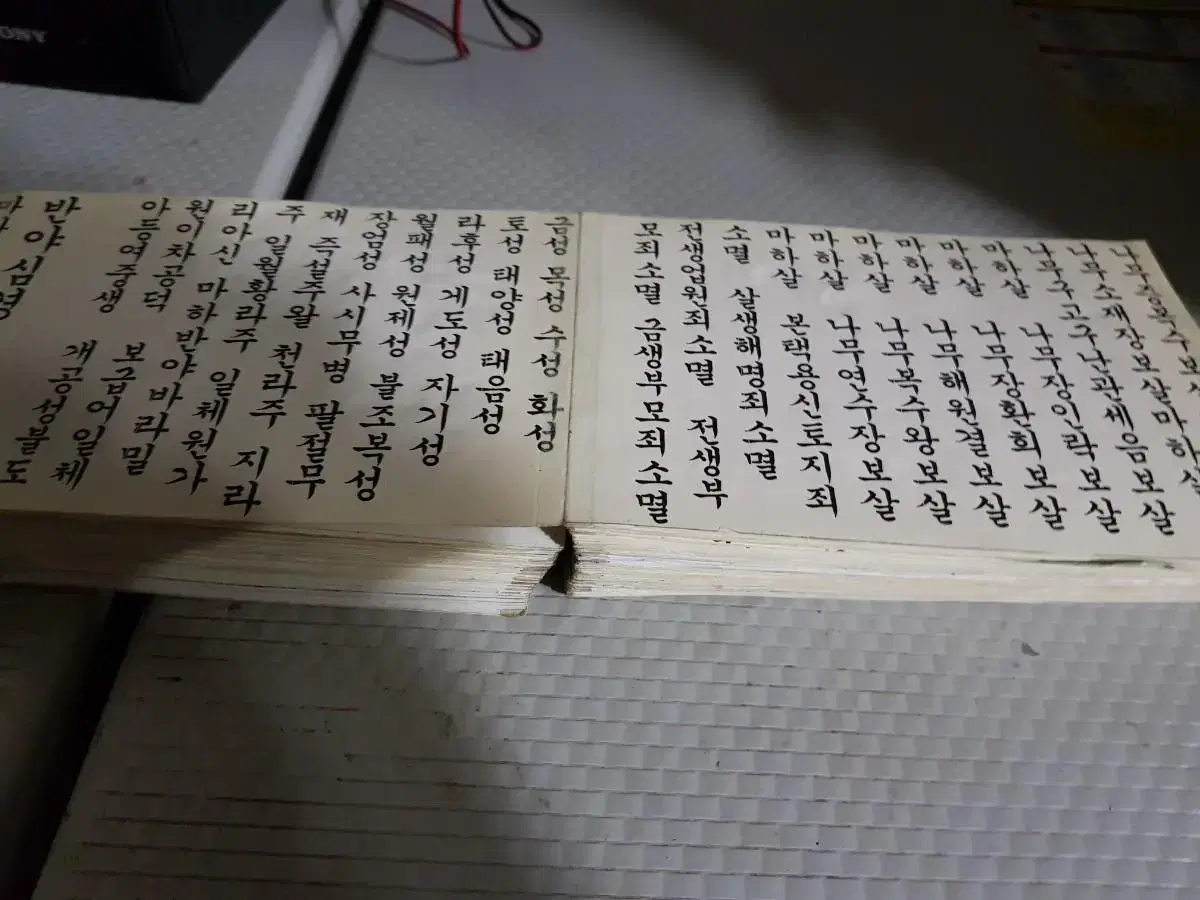 나무소재장보살마하살
나무구고구난관세음보살
마하살 나무장인락보살
마하살 나무장환희보살
마하살 나무해원결보살
마하살 나무복수왕보살
마하살 나무연수장보살
마하살 본택용신토지죄
소멸 살생해명죄소멸
전생업원죄소멸 전생부
모죄소멸 금생부모죄소멸
금성 목성 수성 화성
토성 태양성 태음성
라후성 게도성 자기성
월패성 원제성 불조복성
장엄성 사시무병 팔절무
재 즉설주왈 천라주 지라
주 일월황라주 일체원가
리아신 마하반야바라밀
원이차공덕 보급어일체
아등여중생 개공성불도
반야심경